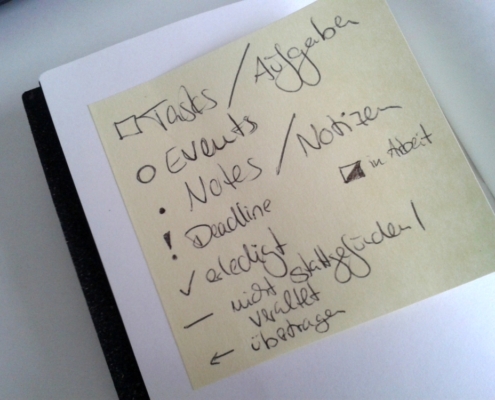 □ Tasks / Aufgaben
○ Events
• Notes / Notizen
! Deadline
◪ in Arbeit
✓ erledigt
— nicht stattgefunden /
veraltet
← übertragen